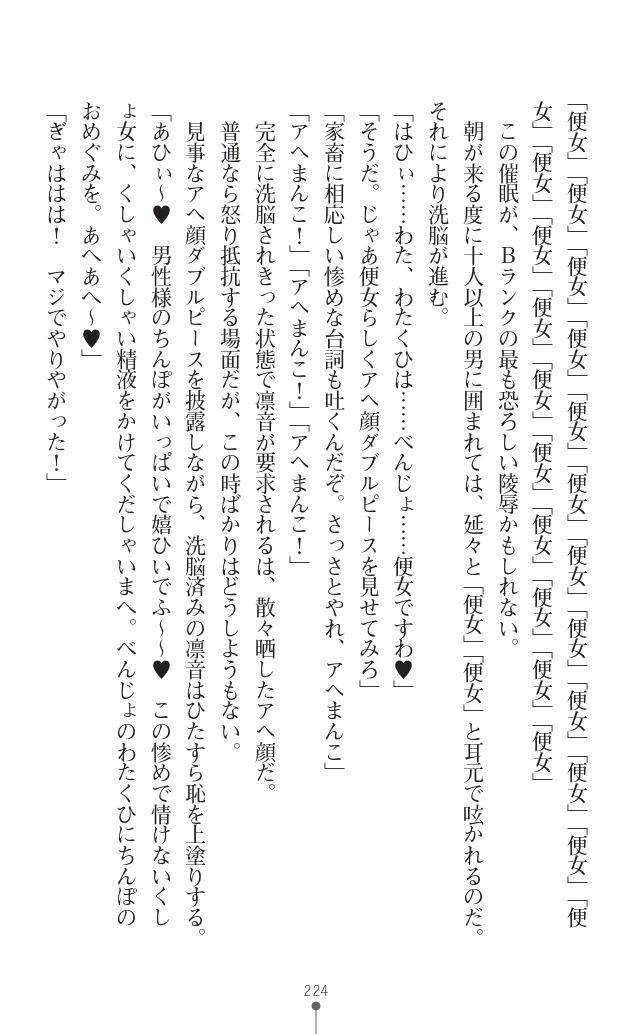 「便女」「便女」「便女」「便女」「便女」「便女」「便女」「便女」「便女」「便女」「便女」「便
女」「便女」「便女」「便女」「便女」「便女」「便女」「便女」「便女」「便女」
　この催眠が、Ｂランクの最も恐ろしい陵辱かもしれない。
　朝が来る度に十人以上の男に囲まれては、延々と「便女」「便女」と耳元で呟かれるのだ。
それにより洗脳が進む。
「はひぃ……わた、わたくひは……べんじょ……便女ですわ♥」
「そうだ。じゃあ便女らしくアヘ顔ダブルピースを見せてみろ」
「家畜に相応しい惨めな台詞も吐くんだぞ。さっさとやれ、アヘまんこ」
「アヘまんこ！」「アヘまんこ！」「アヘまんこ！」
　完全に洗脳されきった状態で凛音が要求されるは、散々晒したアヘ顔だ。
　普通なら怒り抵抗する場面だが、この時ばかりはどうしようもない。
　見事なアヘ顔ダブルピースを披露しながら、洗脳済みの凛音はひたすら恥を上塗りする。
「あひぃ～♥　男性様のちんぽがいっぱいで嬉ひいでふ～～♥　この惨めで情けないくし
ょ女に、くしゃいくしゃい精液をかけてくだしゃいまへ。べんじょのわたくひにちんぽの
おめぐみを。あへあへ～♥」
「ぎゃははは！　マジでやりやがった！」
224